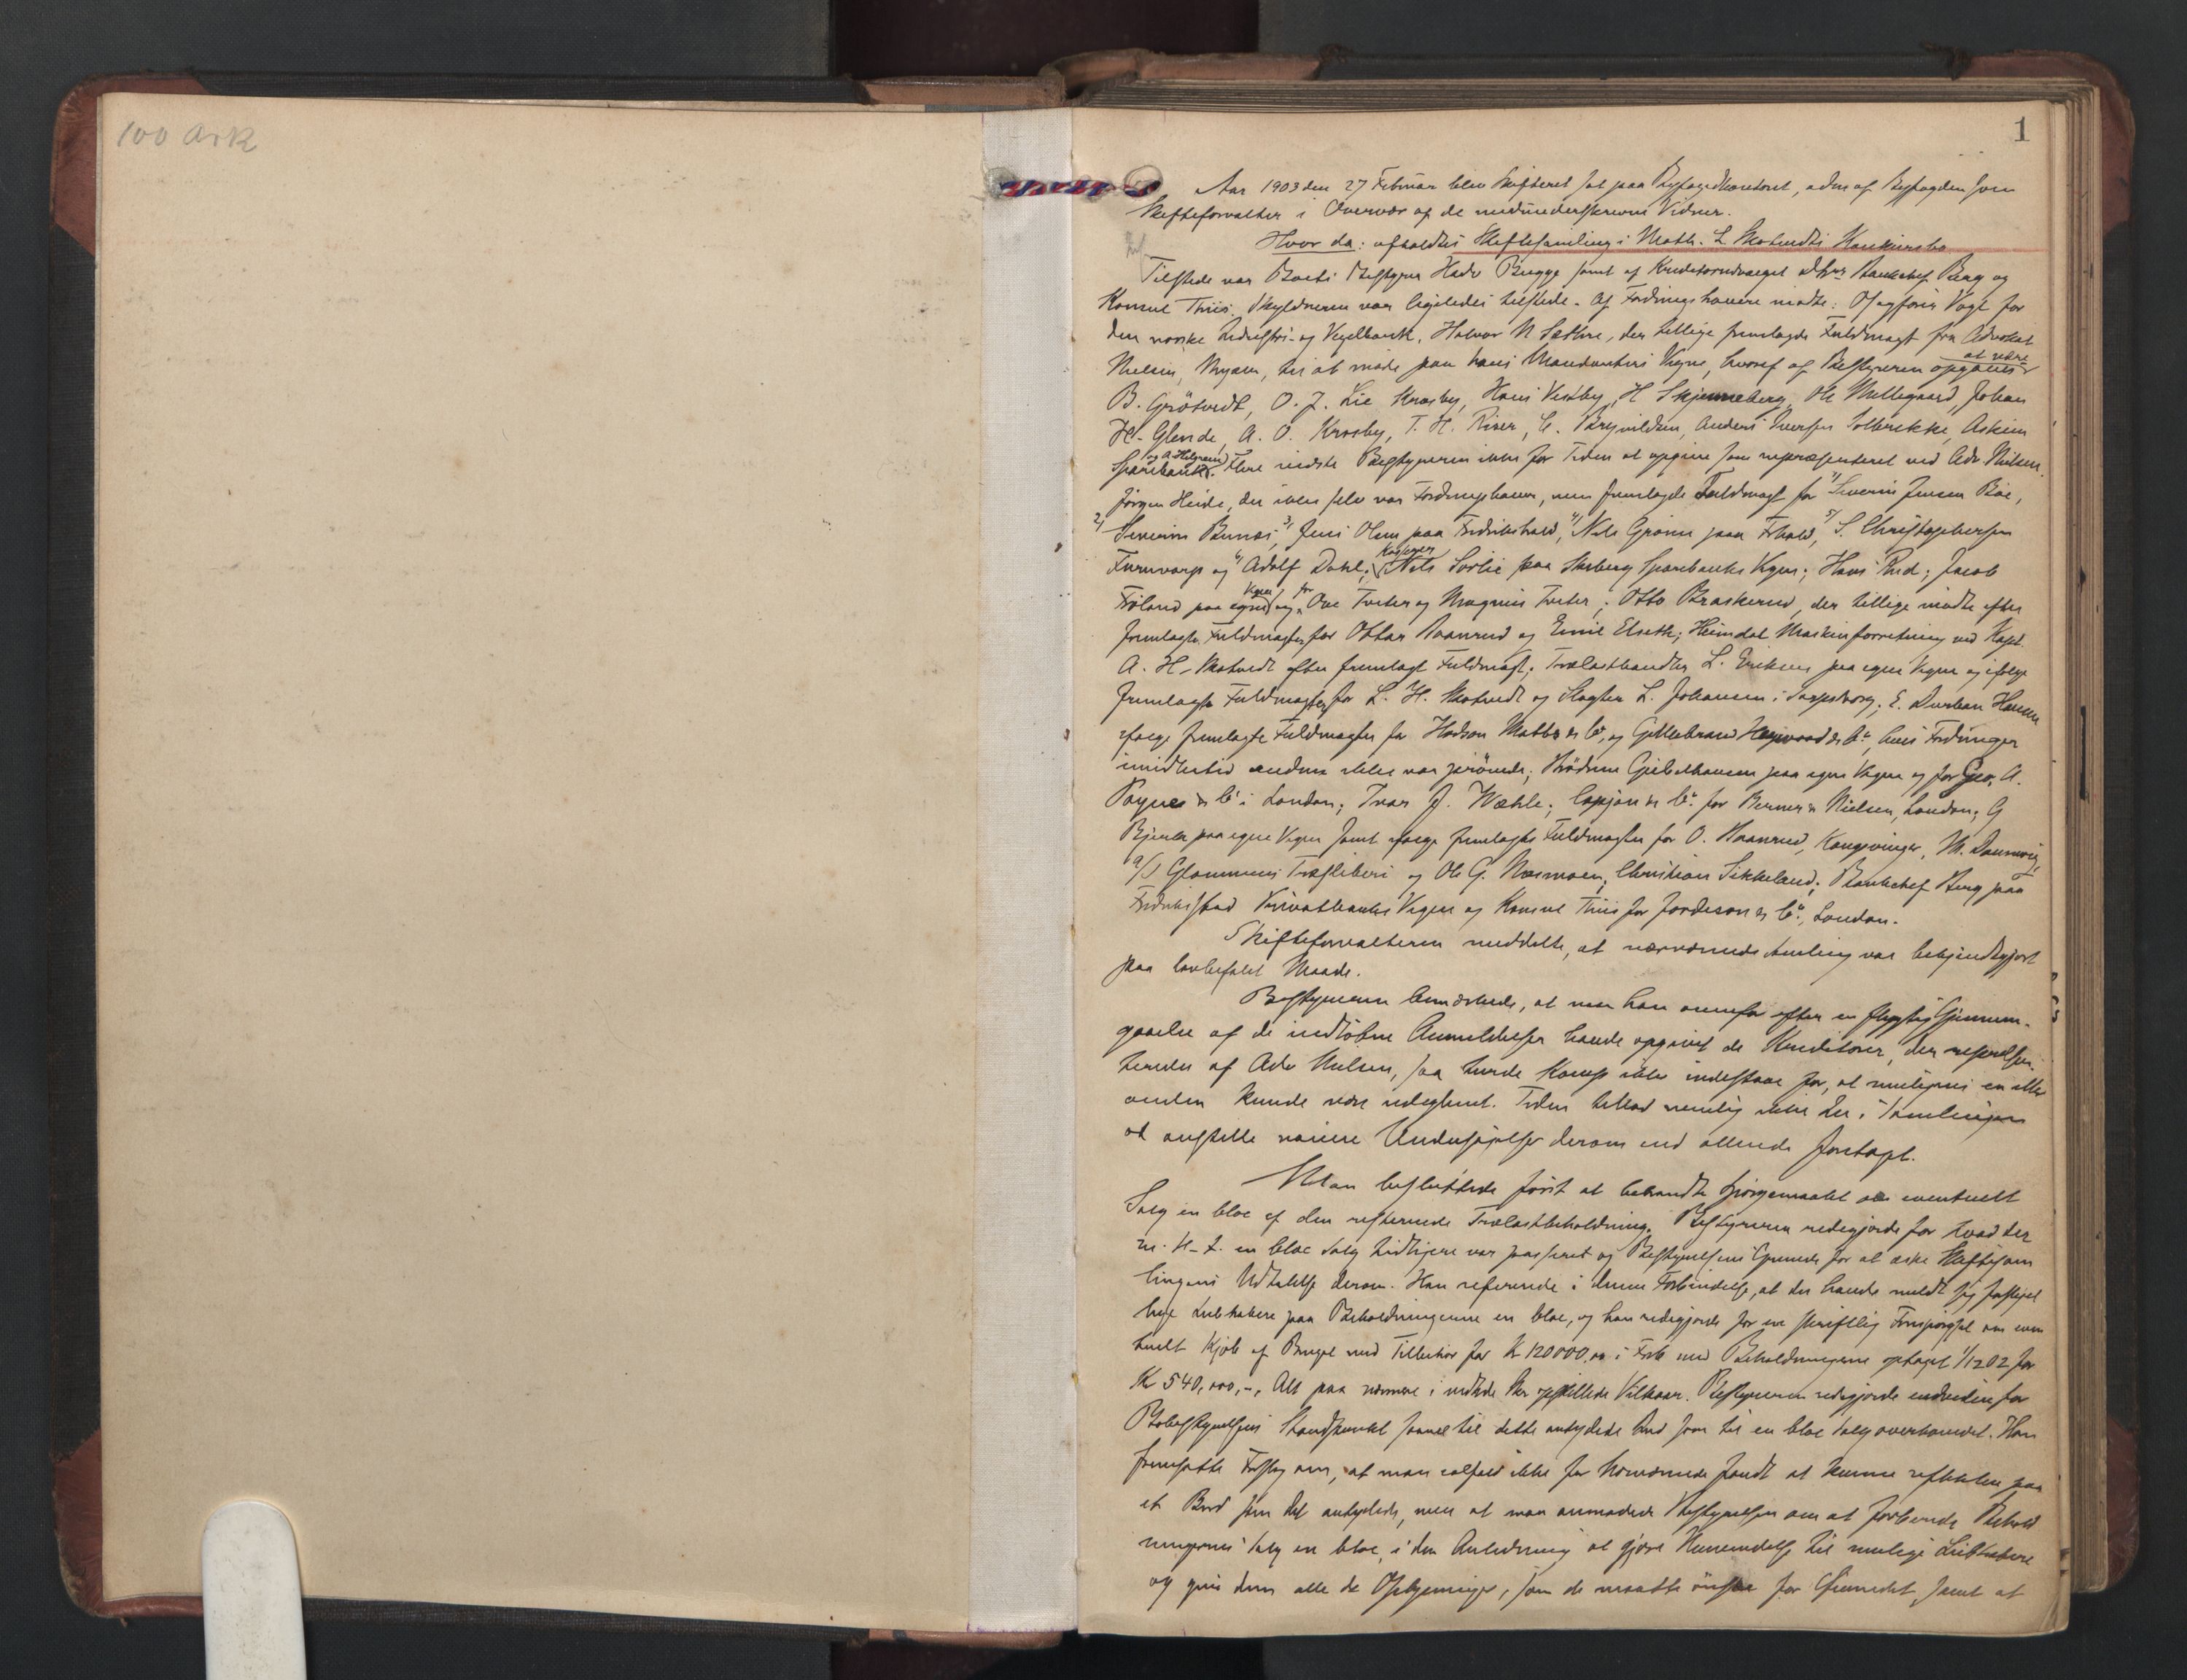 100 Ark
1
Aar 1903 den 27 Februar blev Skifteret sat paa Byfogedkontoret, adm. af Byfogden som
Skifteforvalter i Overvær af de medunderskrevne Vidner.
Hvor da: afholdtes Skiftesamling i Math. L Skotvedts Konkursbo
Tilstede var Boets Bestyrer Hadv Bugge samt af Kreditorudvalget DHrr Bankchef Berg og
Konsul Thiis. Skyldneren var ligeledes tilstede. Af Fordringshavere mødte: Vogt for
den norske Industri- og Vexelbank, Halvor N Sæthre, der tillige fremlagde Fuldmagt fra Advokat
Nielsen, Mysen, til at møde paa hans Mandanters Vegne, hvoraf af Bestyreren opgaves
at være
B. Grötvedt, O. J. Lie Krosby, Hans Vestby, H Skjenneberg, Ole Mellegaard, Johan
H. Glende, A. O. Krosby, T. H. Riser, C. Brynildsen, Anders Iversen Solbrekke, Askim
og A Helgesen
Sparebank. Flere vidste Bestyreren ikke for Tiden at opgive som repræsenteret ved Adv Nielsen.
Jörgen Heide, der ikke selv var Fordringshaver, men fremlagde Fuldmagt for 1/ Severin Jensen Böe,
2/ Severin Bunæs, 3/ Jens Olsen paa Fredrikshald, 4/ Nils Grönn paa Fhald, 5/ S. Christophersen
Kasserer
Furuvarp og 6/ Adolf Dahl; Nils Sørlie paa Skiberg Sparebanks Vegne; Hans Rud; Jacob
Vegne for
Fröland paa egne og Ove Tveter og Magnus Tveter; Otto Braskerud, der tillige mødte efter
fremlagte Fuldmagter for Ottar Haanrud og Emil Elseth; Heimdal Maskinforretning ved Kapt.
A. H. Skotvedt efter fremlagt Fuldmagt; Trælasthandler L. Eriksen paa egne Vegne og ifølge
fremlagte Fuldmagter for L. H. Skotvedt og Slagter L. Johansen i Sarpsborg; E. Durban Hansen
ifølge fremlagte Fuldmagter for Hodson Mabbs & Co, og Gillebrand Heywood & Co, hvis Fordringer
imidlertid endnu ikke var prøvede; Brödrene Gjelsthausen paa egne Vegne og for Geo. A.
Paynes & Co i London; Ivar J. Wæhle; Capjon & Co. for Berner & Nielsen, London; G
Bjerke paa egne Vegne samt ifølge fremlagte Fuldmagter for O. Haanrud, Kongsvinger, M. Dannevig,
A/S Glommens Træsliberi og Ole G. Næsmoen; Christian Sikkeland; Bankchef Berg paa
Fredriksstad Privatbanks Vegne og Konsul Thiis for Jordeson & Co., London.
Skifteforvalteren meddelte, at nærværende Samling var bekjendtgjort
paa lovbefalet Maade.
Bestyreren bemærkede, at naar han ovenfor efter en flygtig Gjennem-
gaaelse af de indløbne Anmeldelser havde opgivet de Kreditorer, der repræsen-
teredes af Adv Nielsen, saa turde Komp ikke indestaae for, at muligens en eller
anden kunde være udeglemt. Tiden tillod nemlig ikke her i Samlingen
at anstille nøiere Undersøgelser derom end allerede foretaget.
Man besluttede først at behandle Spørgsmaalet om eventuelt
Salg en bloc af den resterende Trælastbeholdning. Bestyreren redegjorde for hvad der
m. H. t. en bloc Salg tidligere var passeret og Bestyrelsens Grunde for at æske Skiftesam
lingens Udtalelse derom. Han refererede i denne Forbindelse, at der havde meldt sig forskjel
lige Liebhabere paa Beholdningerne en bloc, og han redegjorde for en skriftlig Forespørgsel om even
tuelt Kjøb af Bruget med Tilbehør for Kr 120 000,00 i Forb med Beholdningerne optaget 1/12 02 for
Kr 540,000,-, Alt paa nærmere i opstillede Vilkaar. Bestyreren redegjorde endvidere for
Bobestyrelsens Standpunkt saavel til dette antydede Bud som til en bloc Salg overhovedet. Han
fremsatte Forslag om, at man ialfald ikke for Nærværende fandt at kunne reflektere paa
et Bud som det antydede, men at man anmodede Bestyrelsen om at forberede Behold
ningernes Salg en bloc, i den Anledning at gjøre Henvendelse til mulige Liebhabere
og give dem alle de Oplysninger, som de maatte ønske for Øiemedet, samt at